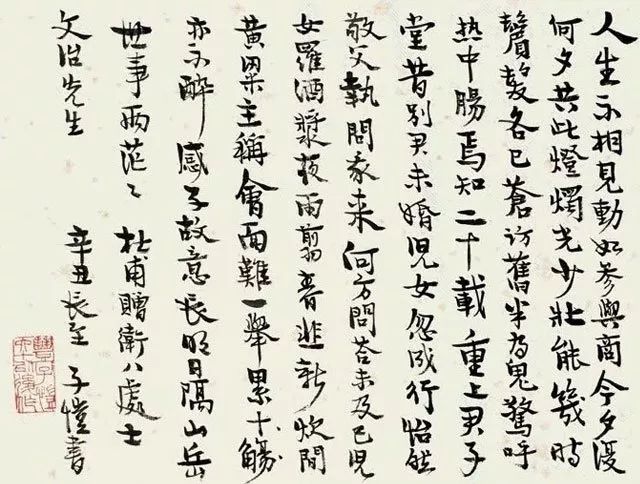 人生不相見動如参與商今夕復
何夕共此燈燭光少壯能幾時
鬢髮各已蒼訪舊半為鬼驚呼
热中腸焉知二十載重上君子
堂昔别君未婚児女忽成行怡然
敬父執問我来何方問荅未及已児
女羅酒漿夜雨翦春韭新炊間
黄粱主稱會面難一舉累十觴
亦不醉感子故意長明日隔山岳
世事两茫〻 杜甫贈衛八處士
文治先生 辛丑長至 子愷書